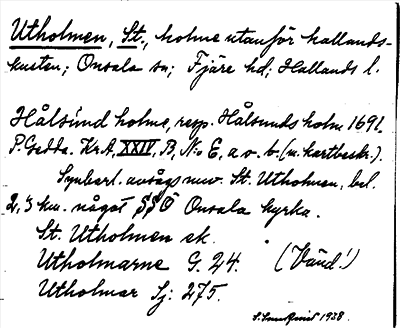 Utholmen, St., holme utanför hallands-
kusten; Onsala sn; Fjäre hd; Hallands l.
Hålsund holme, resp. Hålsunds holm 1691.
P. Gedda. Kr.A, XXIV, B, N:o E, a o. b. (m. kartbeskr.).
Synbarl. avsågs nuv. St. Utholmen, bel.
2,3 km. något SSÖ Onsala kyrka.
St. Utholmen ek.
Utholmarne G. 24. (Vänd!)
Utholmar Sj: 275.
1938.